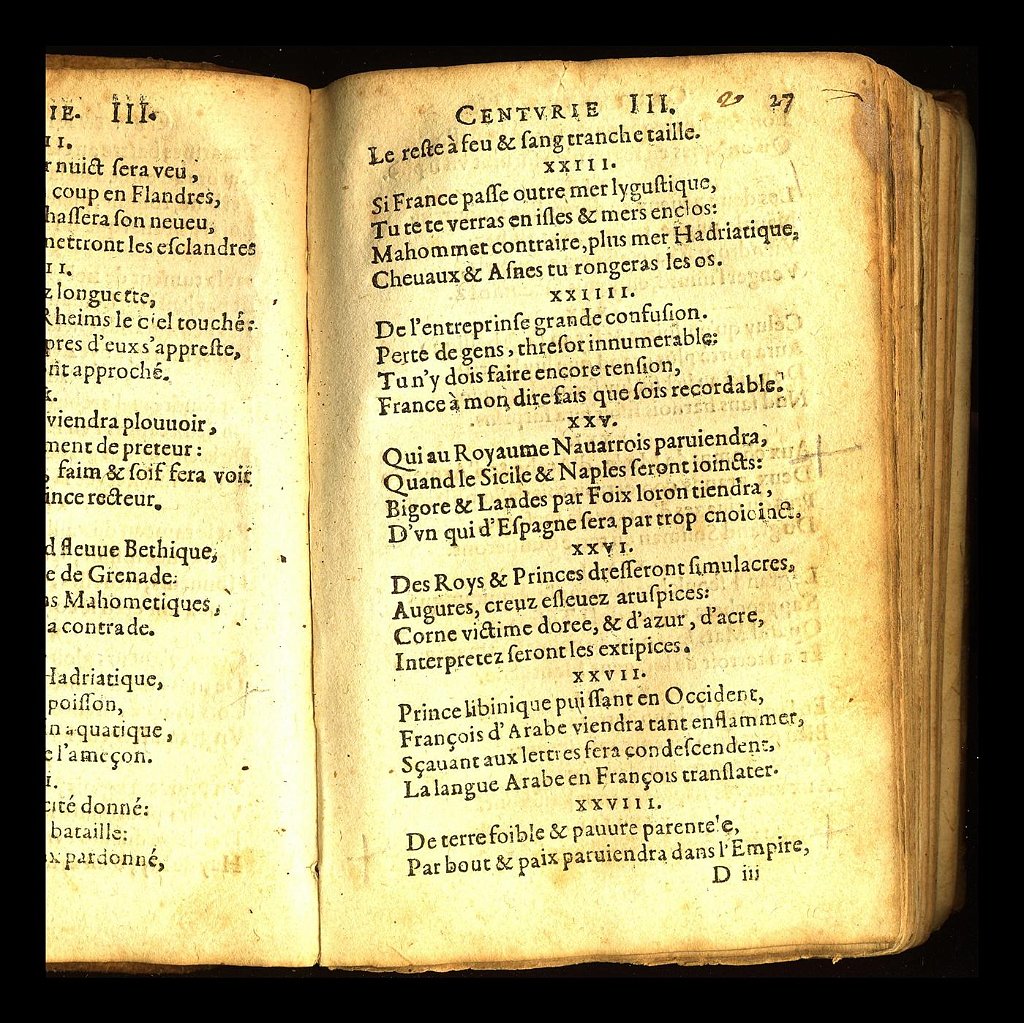 IE. III.
II.
r nuict ſera veu,
coup en Flandres,
haſſera ſon neueu,
mettront les eſclandres
II.
z longuette,
Rheims le ciel touché:
pres d'eux s'appreſte,
nt approché.
viendra plouuoir,
ment de preteur:
, faim & ſoif fera voir
ince recteur.
d fleuue Bethique,
e de Grenade:
ns Mahometiques,
a contrade.
Hadriatique,
poiſſon,
n aquatique,
e l'ameçon.
i.
cité donné:
bataille:
x pardonné,
CENTVRIE III. 27
Le reſte à feu & ſang tranche taille.
XXIII.
Si France paſſe outre mer lyguſtique,
Tu te te verras en iſles & mers enclos:
Mahommet contraire, plus mer Hadriatique,
Cheuaux & Aſnes tu rongeras les os.
XXIIII.
De l'entreprinſe grande confuſion.
Perte de gens, threſor innumerable:
Tu n'y dois faire encore tenſion,
France à mon dire fais que ſois recordable.
XXV.
Qui au Royaume Nauarrois paruiendra,
Quand le Sicile & Naples ſeront ioincts:
Bigore & Landes par Foix loron tiendra,
D'vn qui d'Eſpagne ſera par trop cnoioinct.
XXVI.
Des Roys & Princes dreſſeront ſimulacres,
Augures, creuz eſleuez aruſpices:
Corne victime doree, & d'azur, d'acre,
Interpretez ſeront les extipices.
XXVII.
Prince libinique puiſſant en Occident,
François d'Arabe viendra tant enflammer,
Sçauant aux lettres ſera condeſcendent,
La langue Arabe en François tranſlater.
XXVIII.
De terre foible & pauure parente'e,
Par bout & paix paruiendra dans l'Empire,
D iii